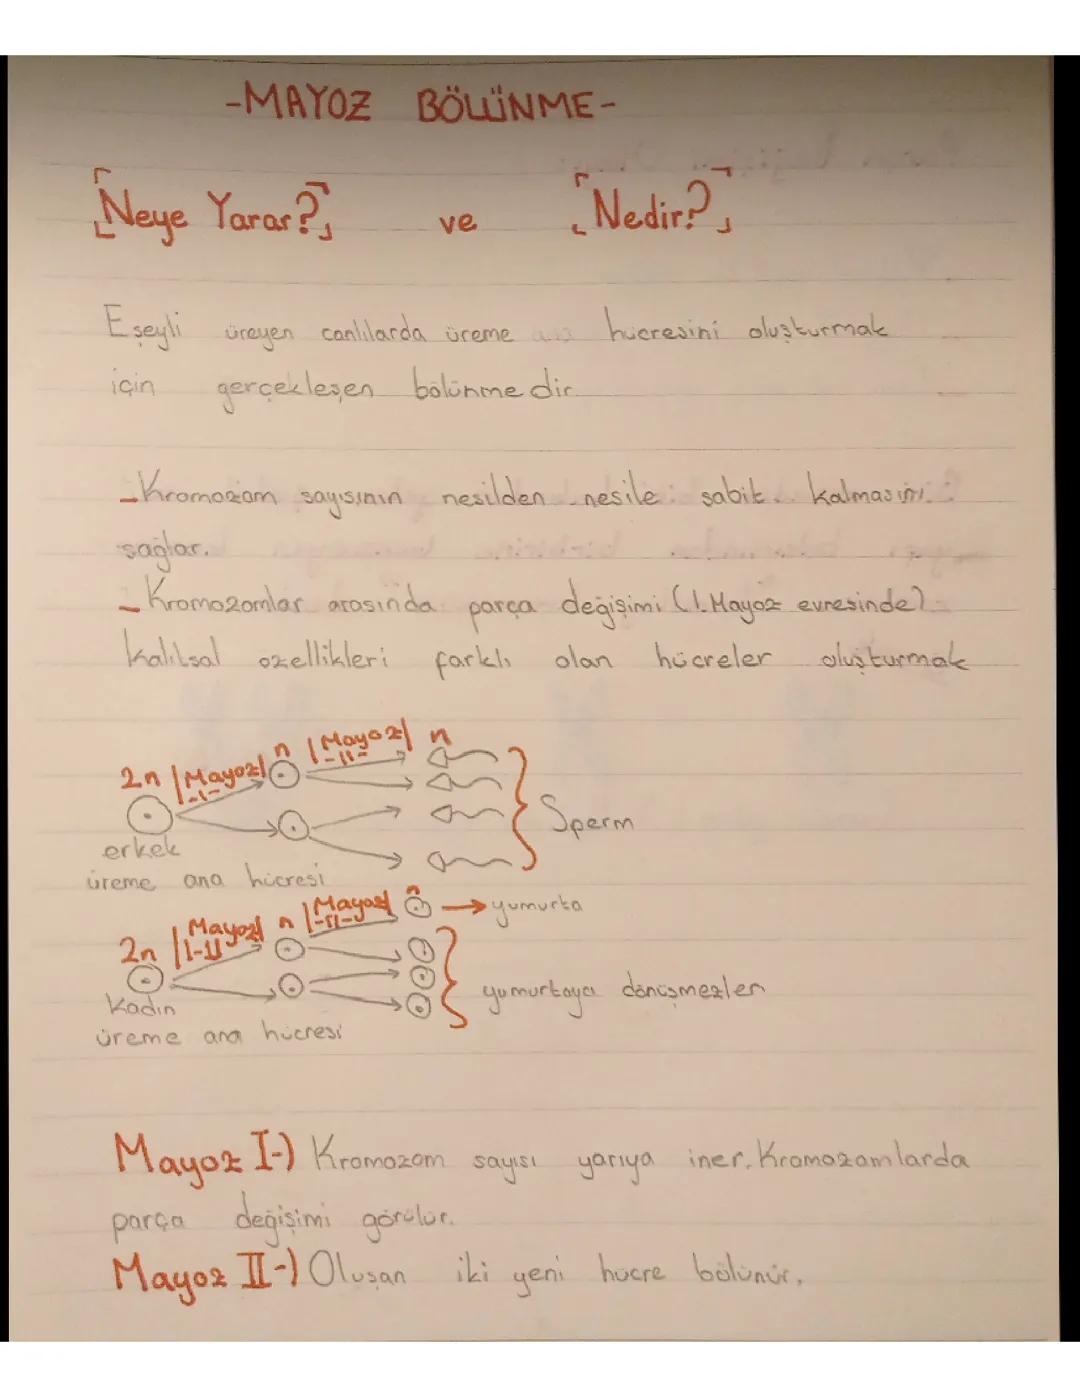 -MAYOZ BÖLÜNME-
Neye Yarar? ve Nedir?
Eşeyli üreyen canlılarda üreme hücresini oluşturmak
için gerçekleşen bölünmedir.
-Kromozom sayısının nesilden nesile sabit kalmasını
sağlar.
-Kromozomlar arasında parça değişimi (1.Mayoz evresinde)
Kalıtsal özellikleri farklı olan hücreler oluşturmak
2n |Mayoz| n |Mayoz| n
-I- -II-
Sperm
erkek
üreme ana hücresi
2n |Mayoz| n |Mayoz| n → yumurta
|-I-| |-II-|
yumurtaya dönüşmezler
Kadın
üreme ana hücresi
Mayoz I-) Kromozom sayısı yarıya iner. Kromozomlarda
parça değişimi görülür.
Mayoz II-) Oluşan iki yeni hücre bölünür.